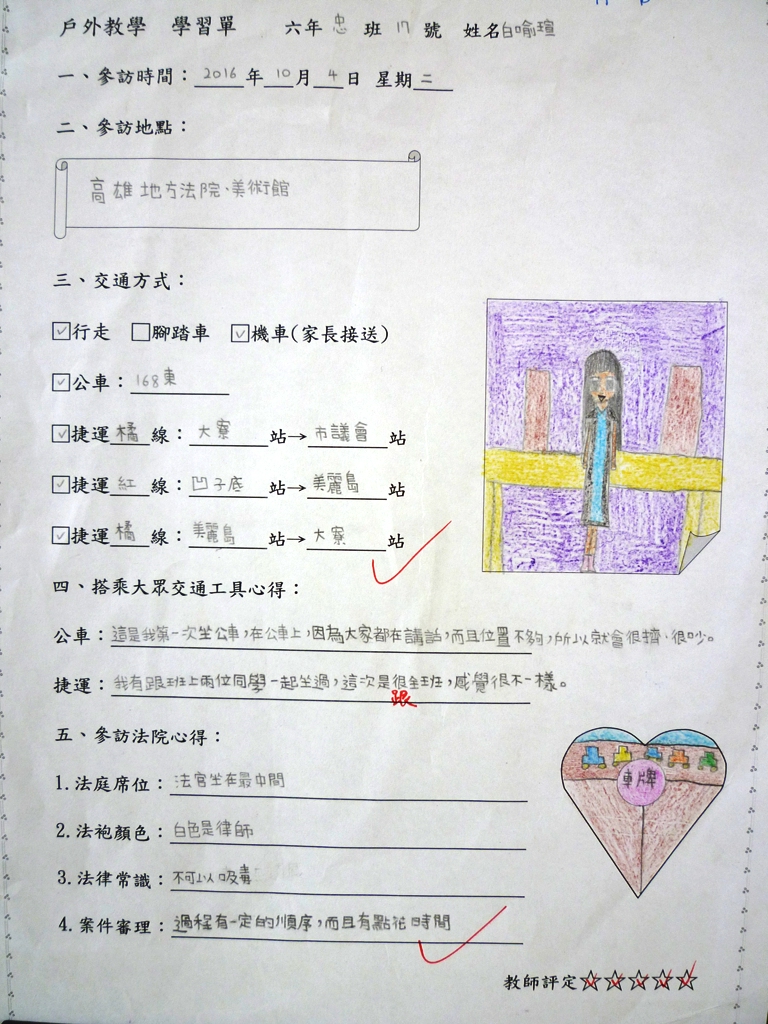 戶外教學 學習單 六年忠班17號 姓名白喻瑄
一、參訪時間：2016年10月4日 星期二
二、參訪地點：
高雄地方法院、美術館
三、交通方式：
☑行走 □腳踏車 ☑機車(家長接送)
☑公車：168東
☑捷運橘線：大寮站→市議會站
☑捷運紅線：凹子底站→美麗島站
☑捷運橘線：美麗島站→大寮站
四、搭乘大眾交通工具心得：
公車：這是我第一次坐公車，在公車上，因為大家都在講話，而且位置不夠，所以就會很擠、很吵。
捷運：我有跟班上兩位同學一起坐過，這次是很全班，感覺很不一樣。
跟
五、參訪法院心得：
1.法庭席位：法官坐在最中間
2.法袍顏色：白色是律師
3.法律常識：不可以吸毒
4.案件審理：過程有一定的順序，而且有點花時間
車牌
教師評定☆☆☆☆☆